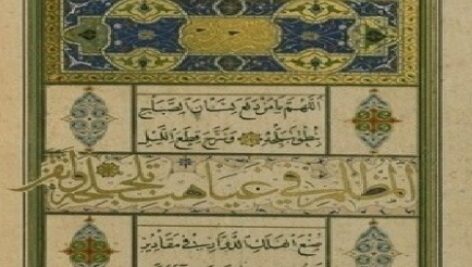 اللهم يا من دلع لسان الصباح
بنطق تبلجه وسرح قطع الليل
المظلم في غياهب تلجلجه واتقن
صنع الفلك الدوار في مقادير